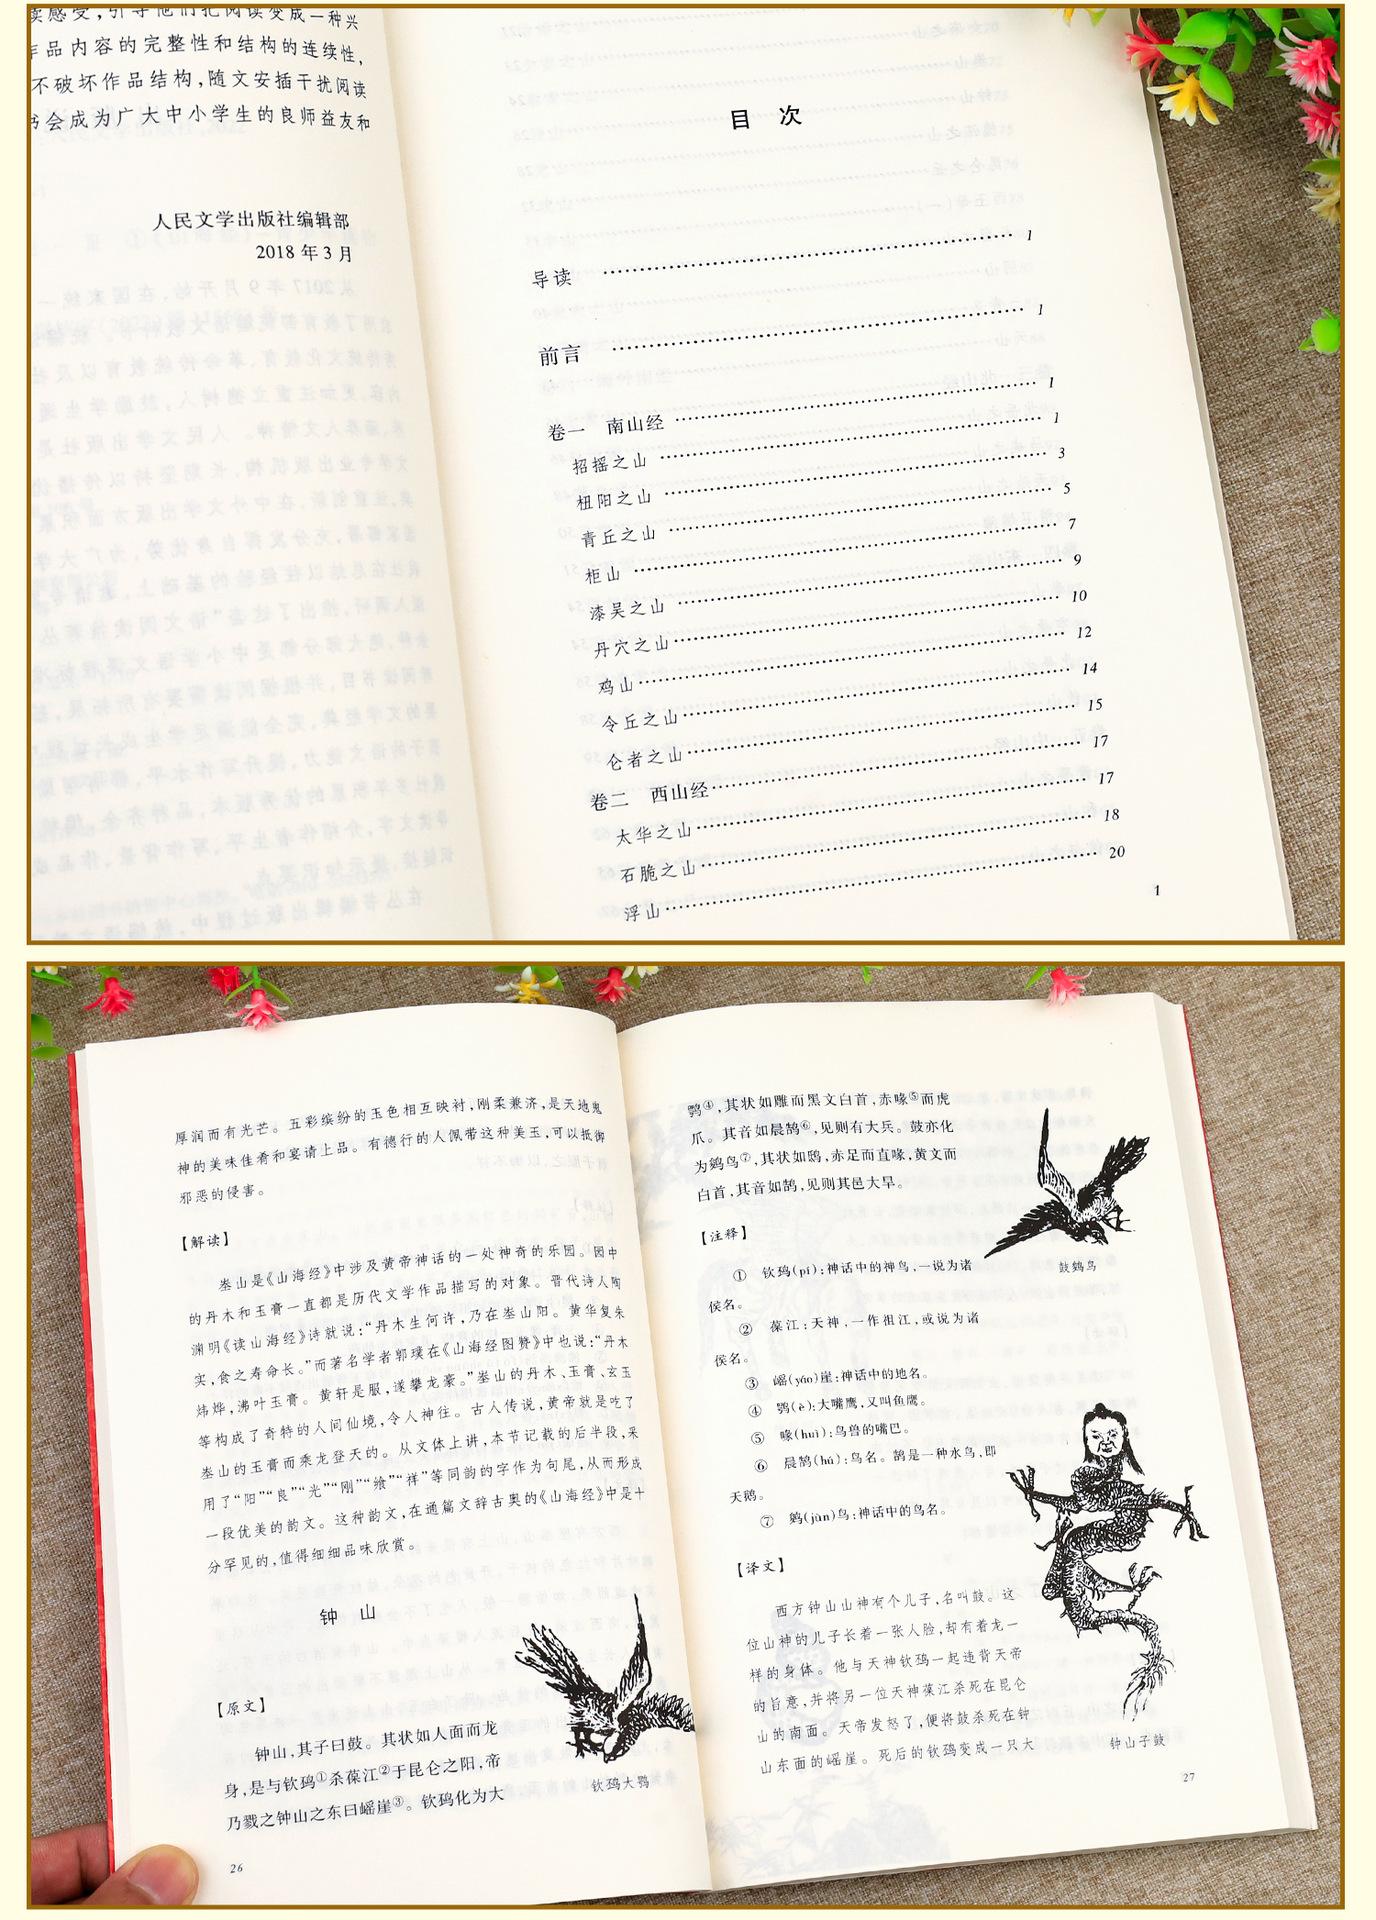 读感受,引导他们把阅读变成一种兴
作品内容的完整性和结构的连续性,
不破坏作品结构,随文安插干扰阅读
书会成为广大中小学生的良师益友和
人民文学出版社编辑部
2018年3月
目 次
导读 1
前言 1
卷一 南山经 1
招摇之山 1
杻阳之山 3
青丘之山 5
柜山 7
漆吴之山 9
丹穴之山 10
鸡山 12
令丘之山 14
仑者之山 15
卷二 西山经 17
太华之山 17
石脆之山 18
浮山 20
1
厚润而有光芒。五彩缤纷的玉色相互映衬,刚柔兼济,是天地鬼
神的美味佳肴和宴请上品。有德行的人佩带这种美玉,可以抵御
邪恶的侵害。
【解读】
峚山是《山海经》中涉及黄帝神话的一处神奇的乐园。园中
的丹木和玉膏一直都是历代文学作品描写的对象。晋代诗人陶
渊明《读山海经》诗就说:“丹木生何许,乃在峚山阳。黄华复朱
实,食之寿命长。”而著名学者郭璞在《山海经图赞》中也说:“丹木
炜烨,沸叶玉膏。黄轩是服,遂攀龙豪。”峚山的丹木、玉膏、玄玉
等构成了奇特的人间仙境,令人神往。古人传说,黄帝就是吃了
峚山的玉膏而乘龙登天的。从文体上讲,本节记载的后半段,采
用了“阳”“良”“光”“刚”“飨”“祥”等同韵的字作为句尾,从而形成
一段优美的韵文。这种韵文,在通篇文辞古奥的《山海经》中是十
分罕见的,值得细细品味欣赏。
钟 山
【原文】
钟山,其子曰鼓。其状如人面而龙
身,是与钦䲹①杀葆江②于昆仑之阳,帝
乃戮之钟山之东曰崾崖③。钦䲹化为大
钦䲹大鹗
26
鹗④,其状如雕而黑文白首,赤喙⑤而虎
爪。其音如晨鹄⑥,见则有大兵。鼓亦化
为鵔鸟⑦,其状如鸱,赤足而直喙,黄文而
白首,其音如鹄,见则其邑大旱。
【注释】
① 钦䲹(pí):神话中的神鸟,一说为诸
侯名。
② 葆江:天神,一作祖江,或说为诸
侯名。
③ 崾(yáo)崖:神话中的地名。
④ 鹗(è):大嘴鹰,又叫鱼鹰。
⑤ 喙(huì):鸟兽的嘴巴。
⑥ 晨鹄(hú):鸟名。鹄是一种水鸟,即
天鹅。
⑦ 鵔(jùn)鸟:神话中的鸟名。
【译文】
西方钟山山神有个儿子,名叫鼓。这
位山神的儿子长着一张人脸,却有着龙一
样的身体。他与天神钦䲹一起违背天帝
的旨意,并将另一位天神葆江杀死在昆仑
山的南面。天帝发怒了,便将鼓杀死在钟
山东面的崾崖。死后的钦䲹变成一只大
鼓鵔鸟
钟山子鼓
27